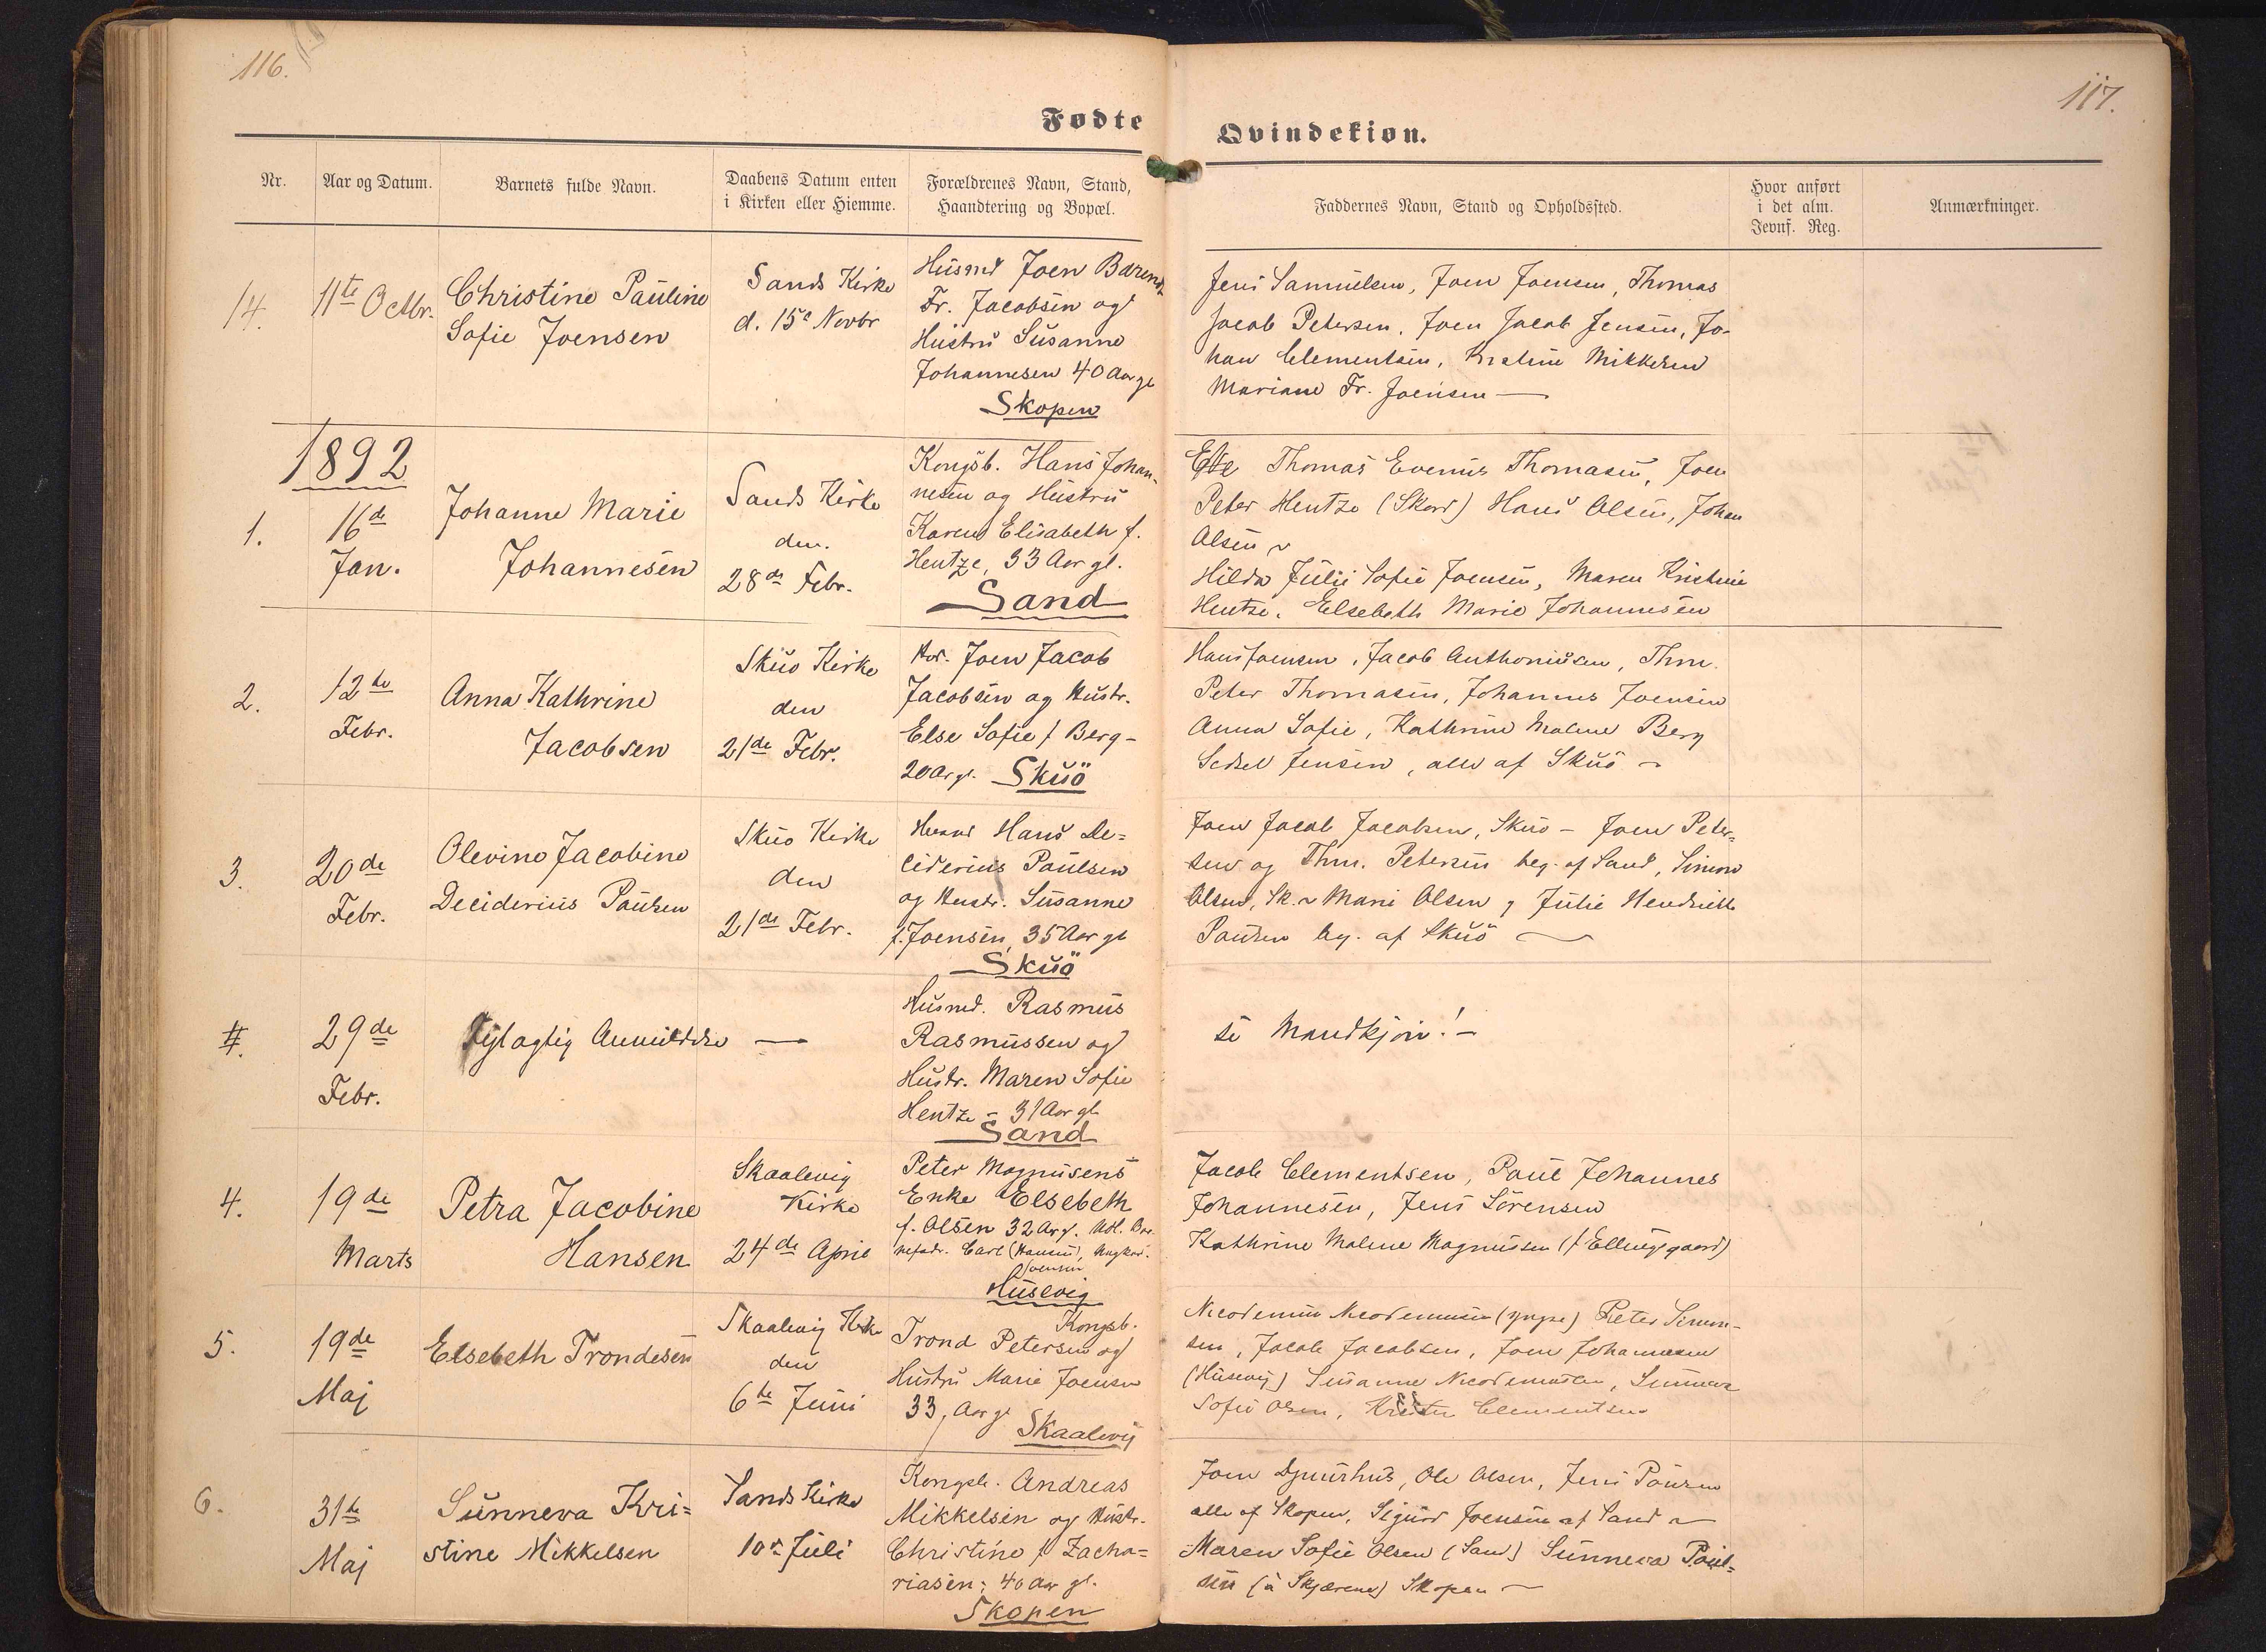 116.
117.
Fødte
Qvindekiøn.
Nr.
Aar og Datum.
Barnets fulde Navn.
Daabens Datum enten
i Kirken eller Hiemme.
Forældrenes Navn, Stand,
Haandtering og Bopæl.
Faddernes Navn, Stand og Opholdssted.
Hvor anført
i det alm.
Jevnf. Reg.
Anmærkninger.
14.
11te Octbr.
Christine Pauline
Sofie Joensen
Sands Kirke
d. 15de Novbr
Husmd Joen Barend
Fr. Jacobsen og
Hustru Susanne
Johannesen 40 Aar gl
Skopen
Jens Samuelsen, Joen Joensen, Thomas
Jacob Petersen, Joen Jacob Jensen, Jo-
han Clementsen, Kristine Mikkelsen
Mariane Fr. Joensen —
1892
1.
16de
Jan.
Johanne Marie
Johannesen
Sands Kirke
den.
28de Febr.
Kongsb. Hans Johan-
nesen og Hustru
Karen Elisabeth f.
Hentze, 33 Aar gl.
Sand
Thomas Evenius Thomasen, Joen
Peter Hentze (Skorv) Hans Olsen, Johan
Olsen
Hilda Julie Sofie Joensen, Maren Kristine
Hentze, Elsebeth Marie Johannesen
2.
12te
Febr.
Anna Kathrine
Jacobsen
Skuø Kirke
den
21de Febr.
Joen Jacob
Jacobsen og Hustr.
Else Sofie f Berg -
20 Ar gl. Skuö
Hans Joensen, Jacob Anthoniusen, Thm.
Peter Thomasen, Johannes Joensen
Anna Sofie, Kathrine Malene Berg
Sedsel Jensen, alle af Skuö -
3.
20de
Febr.
Olevine Jacobine
Deciderius Poulsen
Skuo Kirke
den
21de Febr.
Husmd Hans De=
ciderius Poulsen
og Hustr. Susanne
f. Joensen, 35 Aar gl
Skuö
Joen Jacob Jacobsen, Skuö - Joen Peter=
sen og Thm. Petersen beg. af Sand, Simon
Olsen, Sk. Marie Olsen, Julie Hendriette
Poulsen beg. af Skuö —
4.
29de
Febr.
Fejlagtig Anmeldelse —
Husmd. Rasmus
Rasmussen og
Hustr. Maren Sofie
Hentze - 31 Aar gl
Sand
se Mandkjön! -
4.
19de
Marts
Petra Jacobine
Hansen
Skaalevig
Kirke
24de April
Peter Magnusens
Enke Elsebeth
f. Olsen 32 Ar gl. Udl. Bar
nefadr. Carl (Hansen), Ungkar.
Joensen
Husevig
Jacob Clementsen, Poul Johannes
Johannesen, Jens Sörensen
Kathrine Malene Magnussen (f Ellingsgaard)
5.
19de
Maj
Elsebeth Trondesen
Skaalevig Kirke
den
6te Juni
Kongsb.
Trond Petersen og
Hustru Marie Joensen
33, Aar gl Skaalevig
Nicodemus Nicodemusen (yngre) Peter Simon-
sen, Jacob Jacobsen, Joen Johannesen
(Husevig) Susanne Nicodemusen, Sunneva
Sofie Olsen, Clementsen
6.
31te
Maj
Sunneva Kri=
stine Mikkelsen
Sands Kirke
10de Juli
Kongsb. Andreas
Mikkelsen og Hustr.
Christine f Zacha=
riasen; 40 Aar gl.
Skopen
Joen Djuurhus, Ole Olsen, Jens Poulsen
alle af Skopen, Sigurd Joensen af Sand
Maren Sofie Olsen (Sand) Sunneva Poul=
sen (à Skjærene) Skopen —